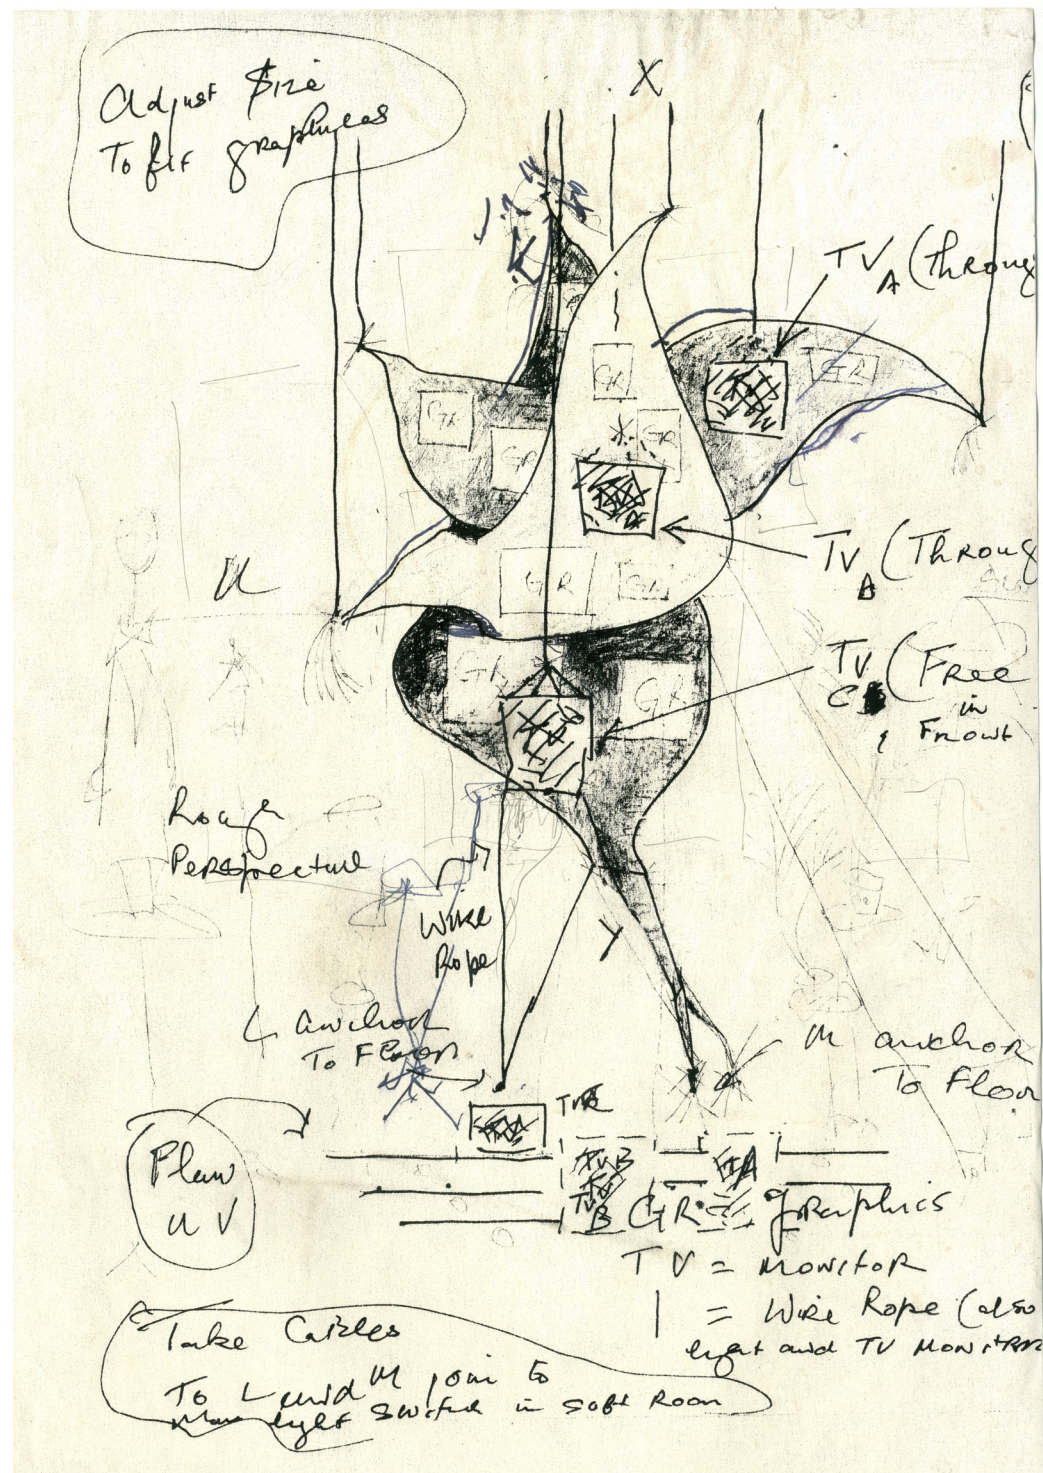 Adjust Size
To fit graphics
X
TV A (Throug
GR
GR
GR
GR
GR
TV A (Throug
U
GR
TV C (Free
in
Front
GR
GR
Rough
Perspective
Wire
Rope
Y
L anchor
To Floor
M anchor
To Floor
TV
Plan
U V
TVB
TV
B
GR = graphics
TV = Monitor
| = Wire Rope (also
light and TV Monitor
Take Cables
To L and M join to
Main light switch in soft Room